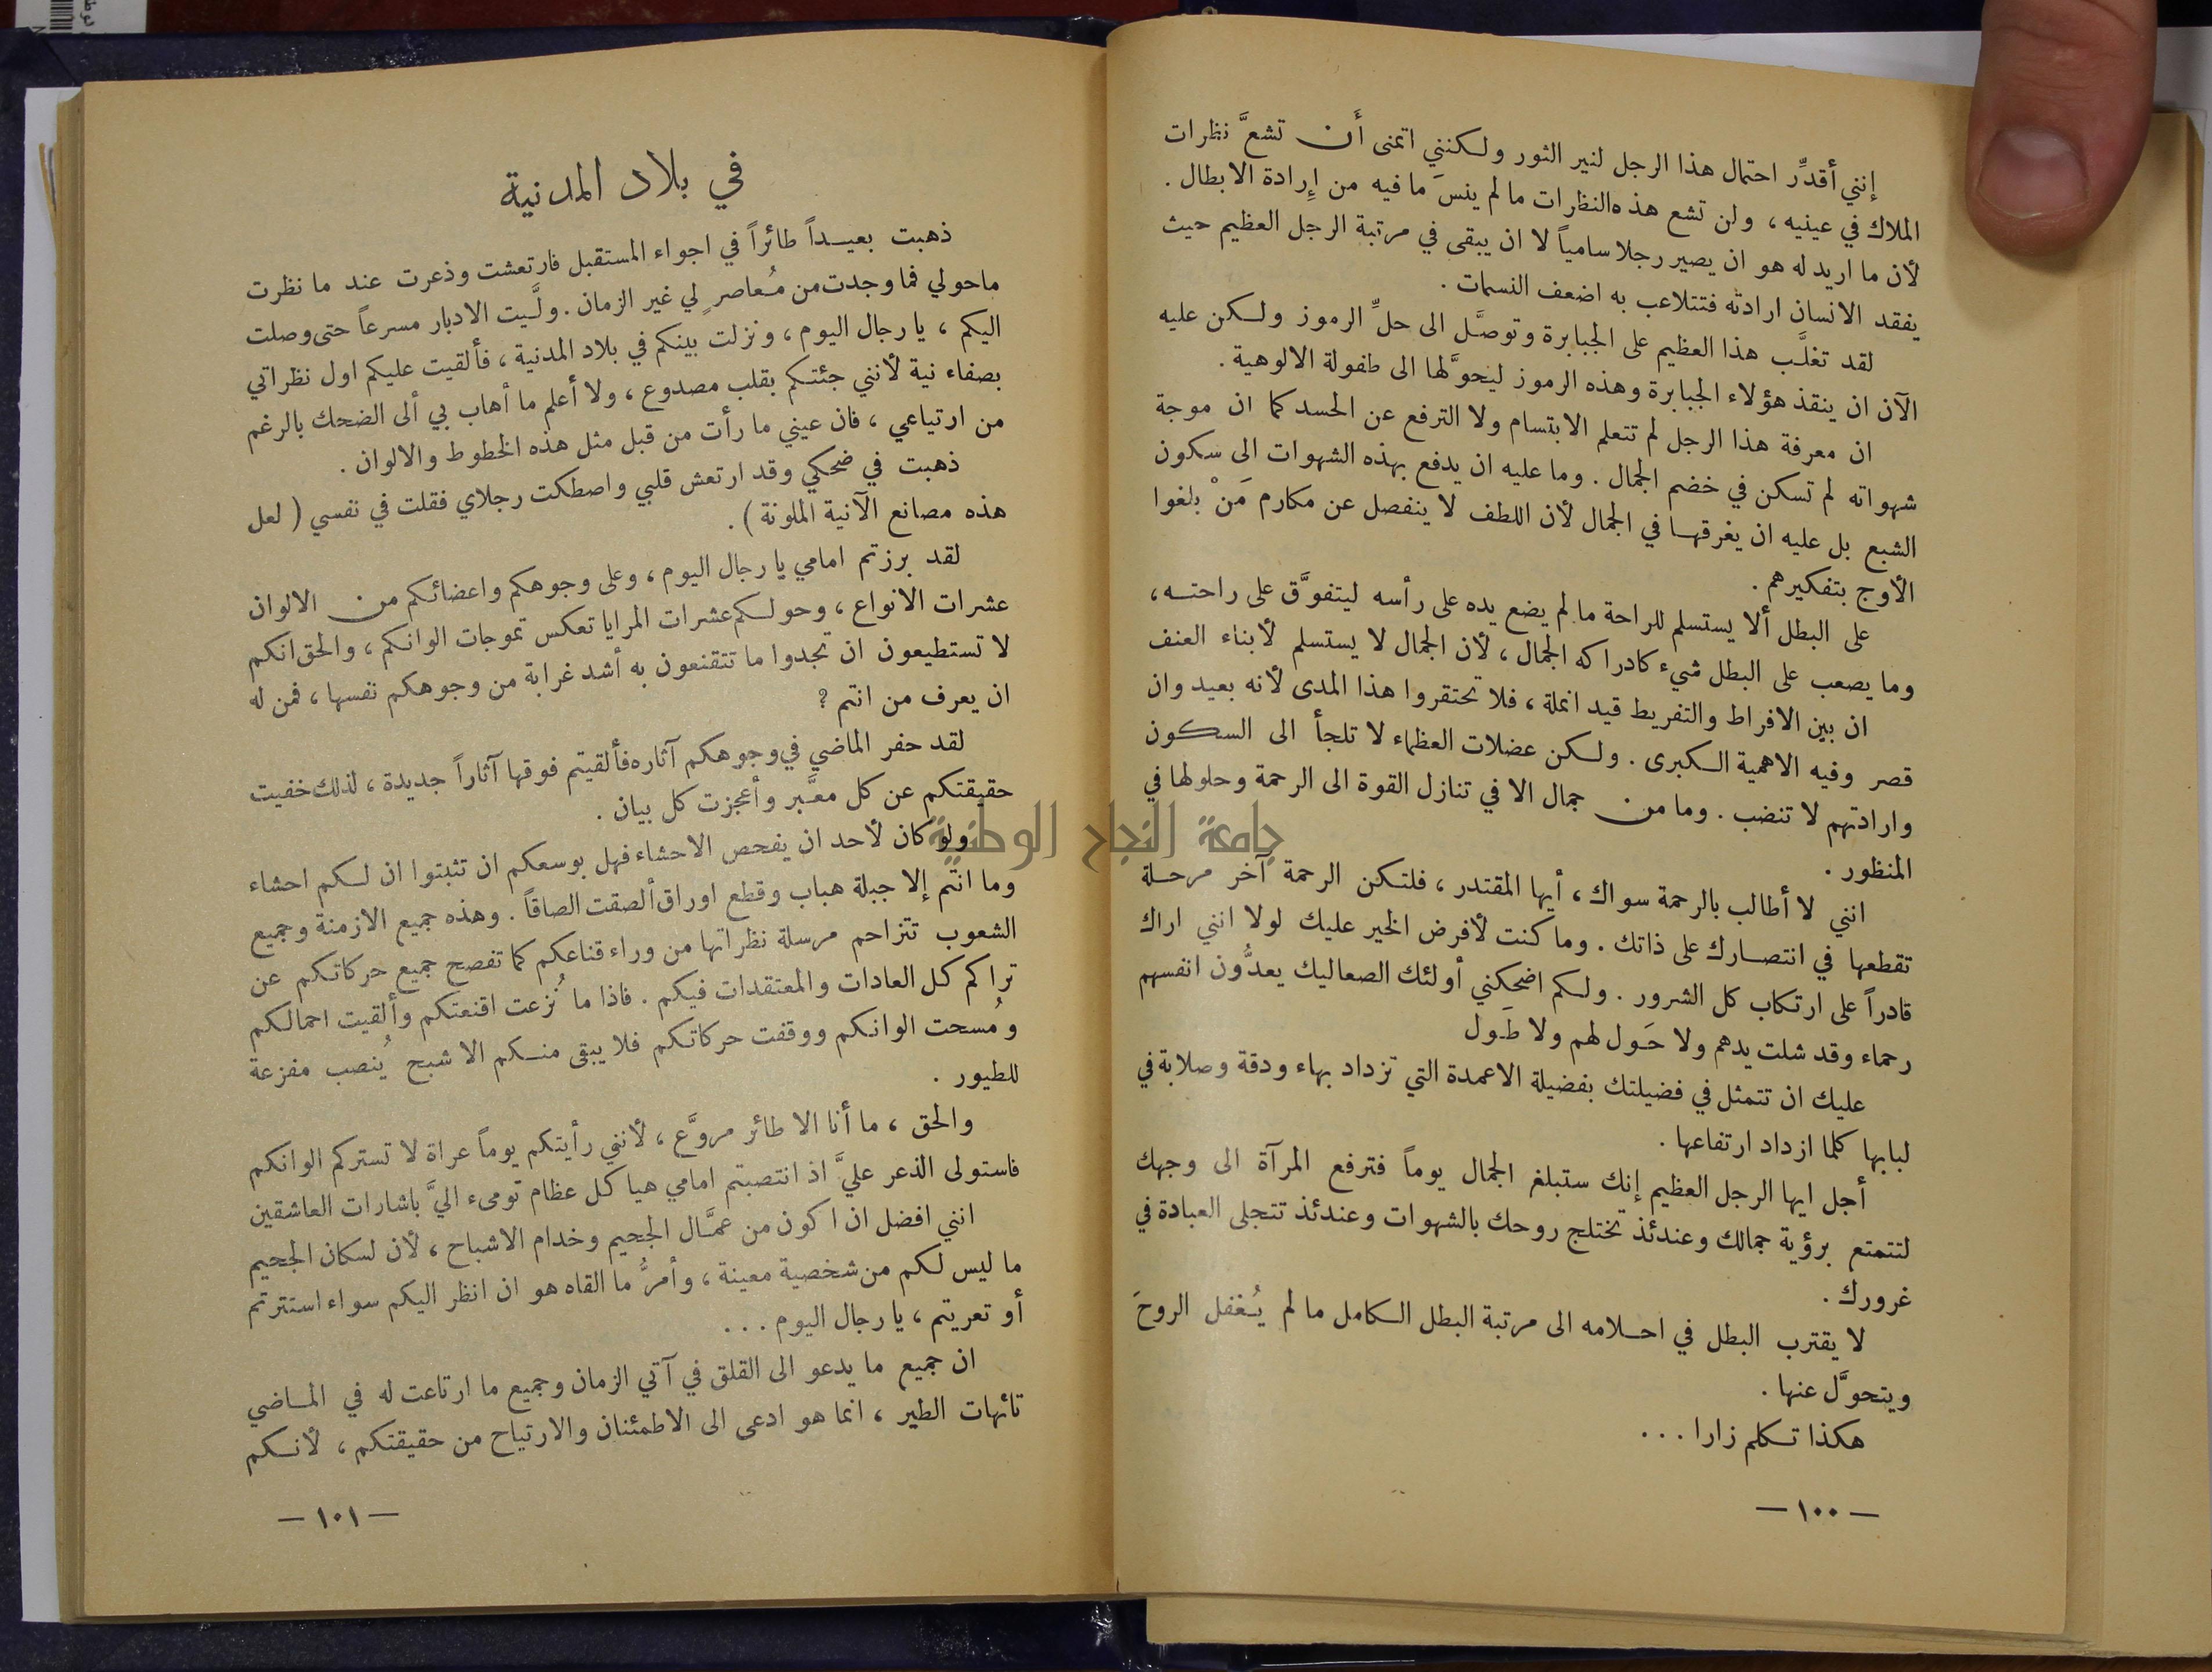 إنني أقدِّر احتمال هذا الرجل لنير الثور ولكنني اتمنى أن تشعَّ نظرات
الملاك في عينيه ، ولن تشع هذه النظرات ما لم ينسَ ما فيه من إرادة الابطال .
لأن ما اريد له هو ان يصير رجلا سامياً لا ان يبقى في مرتبة الرجل العظيم حيث
يفقد الانسان ارادته فتتلاعب به اضعف النسمات .
لقد تغلَّب هذا العظيم على الجبابرة وتوصَّل الى حلِّ الرموز ولكن عليه
الآن ان ينقذ هؤلاء الجبابرة وهذه الرموز ليحوَّلها الى طفولة الالوهية .
ان معرفة هذا الرجل لم تتعلم الابتسام ولا الترفع عن الحسد كما ان موجة
شهواته لم تسكن في خضم الجمال . وما عليه ان يدفع بهذه الشهوات الى سكون
الشبع بل عليه ان يغرقها في الجمال لأن اللطف لا ينفصل عن مكارم مَنْ بلغوا
الأوج بتفكيرهم .
على البطل ألا يستسلم للراحة ما لم يضع يده على رأسه ليتفوَّق على راحته ،
وما يصعب على البطل شيء كادراكه الجمال ، لأن الجمال لا يستسلم لأبناء العنف
ان بين الافراط والتفريط قيد انملة ، فلا تحتقروا هذا المدى لأنه بعيد وان
قصر وفيه الاهمية الكبرى . ولكن عضلات العظماء لا تلجأ الى السكون
وارادتهم لا تنضب . وما من جمال الا في تنازل القوة الى الرحمة وحلولها في
المنظور .
انني لا أطالب بالرحمة سواك ، أيها المقتدر ، فلتكن الرحمة آخر مرحلة
تقطعها في انتصارك على ذاتك . وما كنت لأفرض الخير عليك لولا انني اراك
قادراً على ارتكاب كل الشرور . ولكم اضحكني أولئك الصعاليك يعدُّون انفسهم
رحماء وقد شلت يدهم ولا حَول لهم ولا طَول
عليك ان تتمثل في فضيلتك بفضيلة الاعمدة التي تزداد بهاء ودقة وصلابة في
لبابها كلما ازداد ارتفاعها .
أجل ايها الرجل العظيم إنك ستبلغ الجمال يوماً فترفع المرآة الى وجهك
لتتمتع برؤية جمالك وعندئذ تختلج روحك بالشهوات وعندئذ تتجلى العبادة في
غرورك .
لا يقترب البطل في احلامه الى مرتبة البطل الكامل ما لم يُغفل الروحَ
ويتحوَّل عنها .
هكذا تكلم زارا . . .
— ١٠٠ —
في بلاد المدنية
ذهبت بعيداً طائراً في اجواء المستقبل فارتعشت وذعرت عند ما نظرت
ماحولي فما وجدت من مُعاصرٍ لي غير الزمان . ولَّيت الادبار مسرعاً حتى وصلت
اليكم ، يا رجال اليوم ، ونزلت بينكم في بلاد المدنية ، فألقيت عليكم اول نظراتي
بصفاء نية لأنني جئتكم بقلب مصدوع ، ولا أعلم ما أهاب بي ألى الضحك بالرغم
من ارتياعي ، فان عيني ما رأت من قبل مثل هذه الخطوط والالوان .
ذهبت في ضحكي وقد ارتعش قلبي واصطكت رجلاي فقلت في نفسي ( لعل
هذه مصانع الآنية الملونة ) .
لقد برزتم امامي يا رجال اليوم ، وعلى وجوهكم واعضائكم من الالوان
عشرات الانواع ، وحولكم عشرات المرايا تعكس تموجات الوانكم ، والحق انكم
لا تستطيعون ان تجدوا ما تتقنعون به أشد غرابة من وجوهكم نفسها ، فمن له
ان يعرف من انتم ؟
لقد حفر الماضي في وجوهكم آثاره فألقيتم فوقها آثاراً جديدة ، لذلك خفيت
حقيقتكم عن كل معبَّر وأعجزت كل بيان .
ولو كان لأحد ان يفحص الاحشاء فهل بوسعكم ان تثبتوا ان لكم احشاء
وما انتم إلا جبلة هباب وقطع اوراق ألصقت الصاقاً . وهذه جميع الازمنة وجميع
الشعوب تتزاحم مرسلة نظراتها من وراء قناعكم كما تفصح جميع حركاتكم عن
تراكم كل العادات والمعتقدات فيكم . فاذا ما نُزعت اقنعتكم وألقيت احمالكم
ومُسحت الوانكم ووقفت حركاتكم فلا يبقى منكم الا شبح يُنصب مفزعة
للطيور .
والحق ، ما أنا الا طائر مروَّع ، لأنني رأيتكم يوماً عراة لا تستركم الوانكم
فاستولى الذعر عليَّ اذ انتصبتم امامي هياكل عظام تومىء اليَّ باشارات العاشقين
انني افضل ان اكون من عمَّال الجحيم وخدام الاشباح ، لأن لسكان الجحيم
ما ليس لكم من شخصية معينة ، وأمرُّ ما القاه هو ان انظر اليكم سواء استترتم
أو تعريتم ، يا رجال اليوم . . .
ان جميع ما يدعو الى القلق في آتي الزمان وجميع ما ارتاعت له في الماضي
تائهات الطير ، انما هو ادعى الى الاطمئنان والارتياح من حقيقتكم ، لأنكم
— ١٠١ —
جامعة النجاح الوطنية